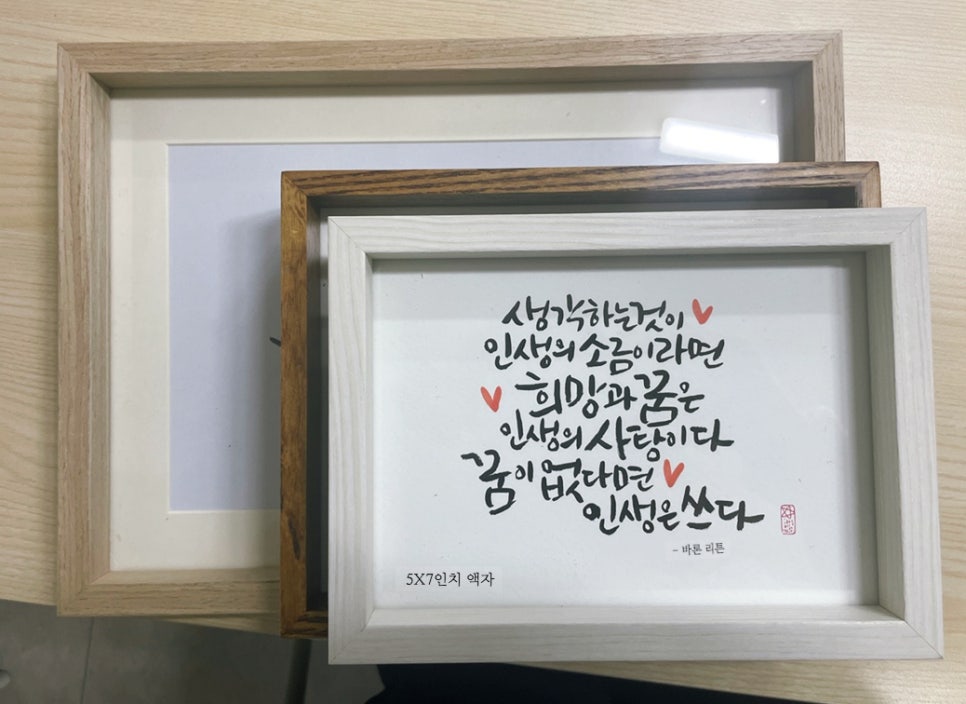 생각하는것이
인생의 소금이라면
희망과 꿈은
인생의 사탕이다
꿈이 없다면
인생은 쓰다
- 바론 리튼
5X7인치 액자